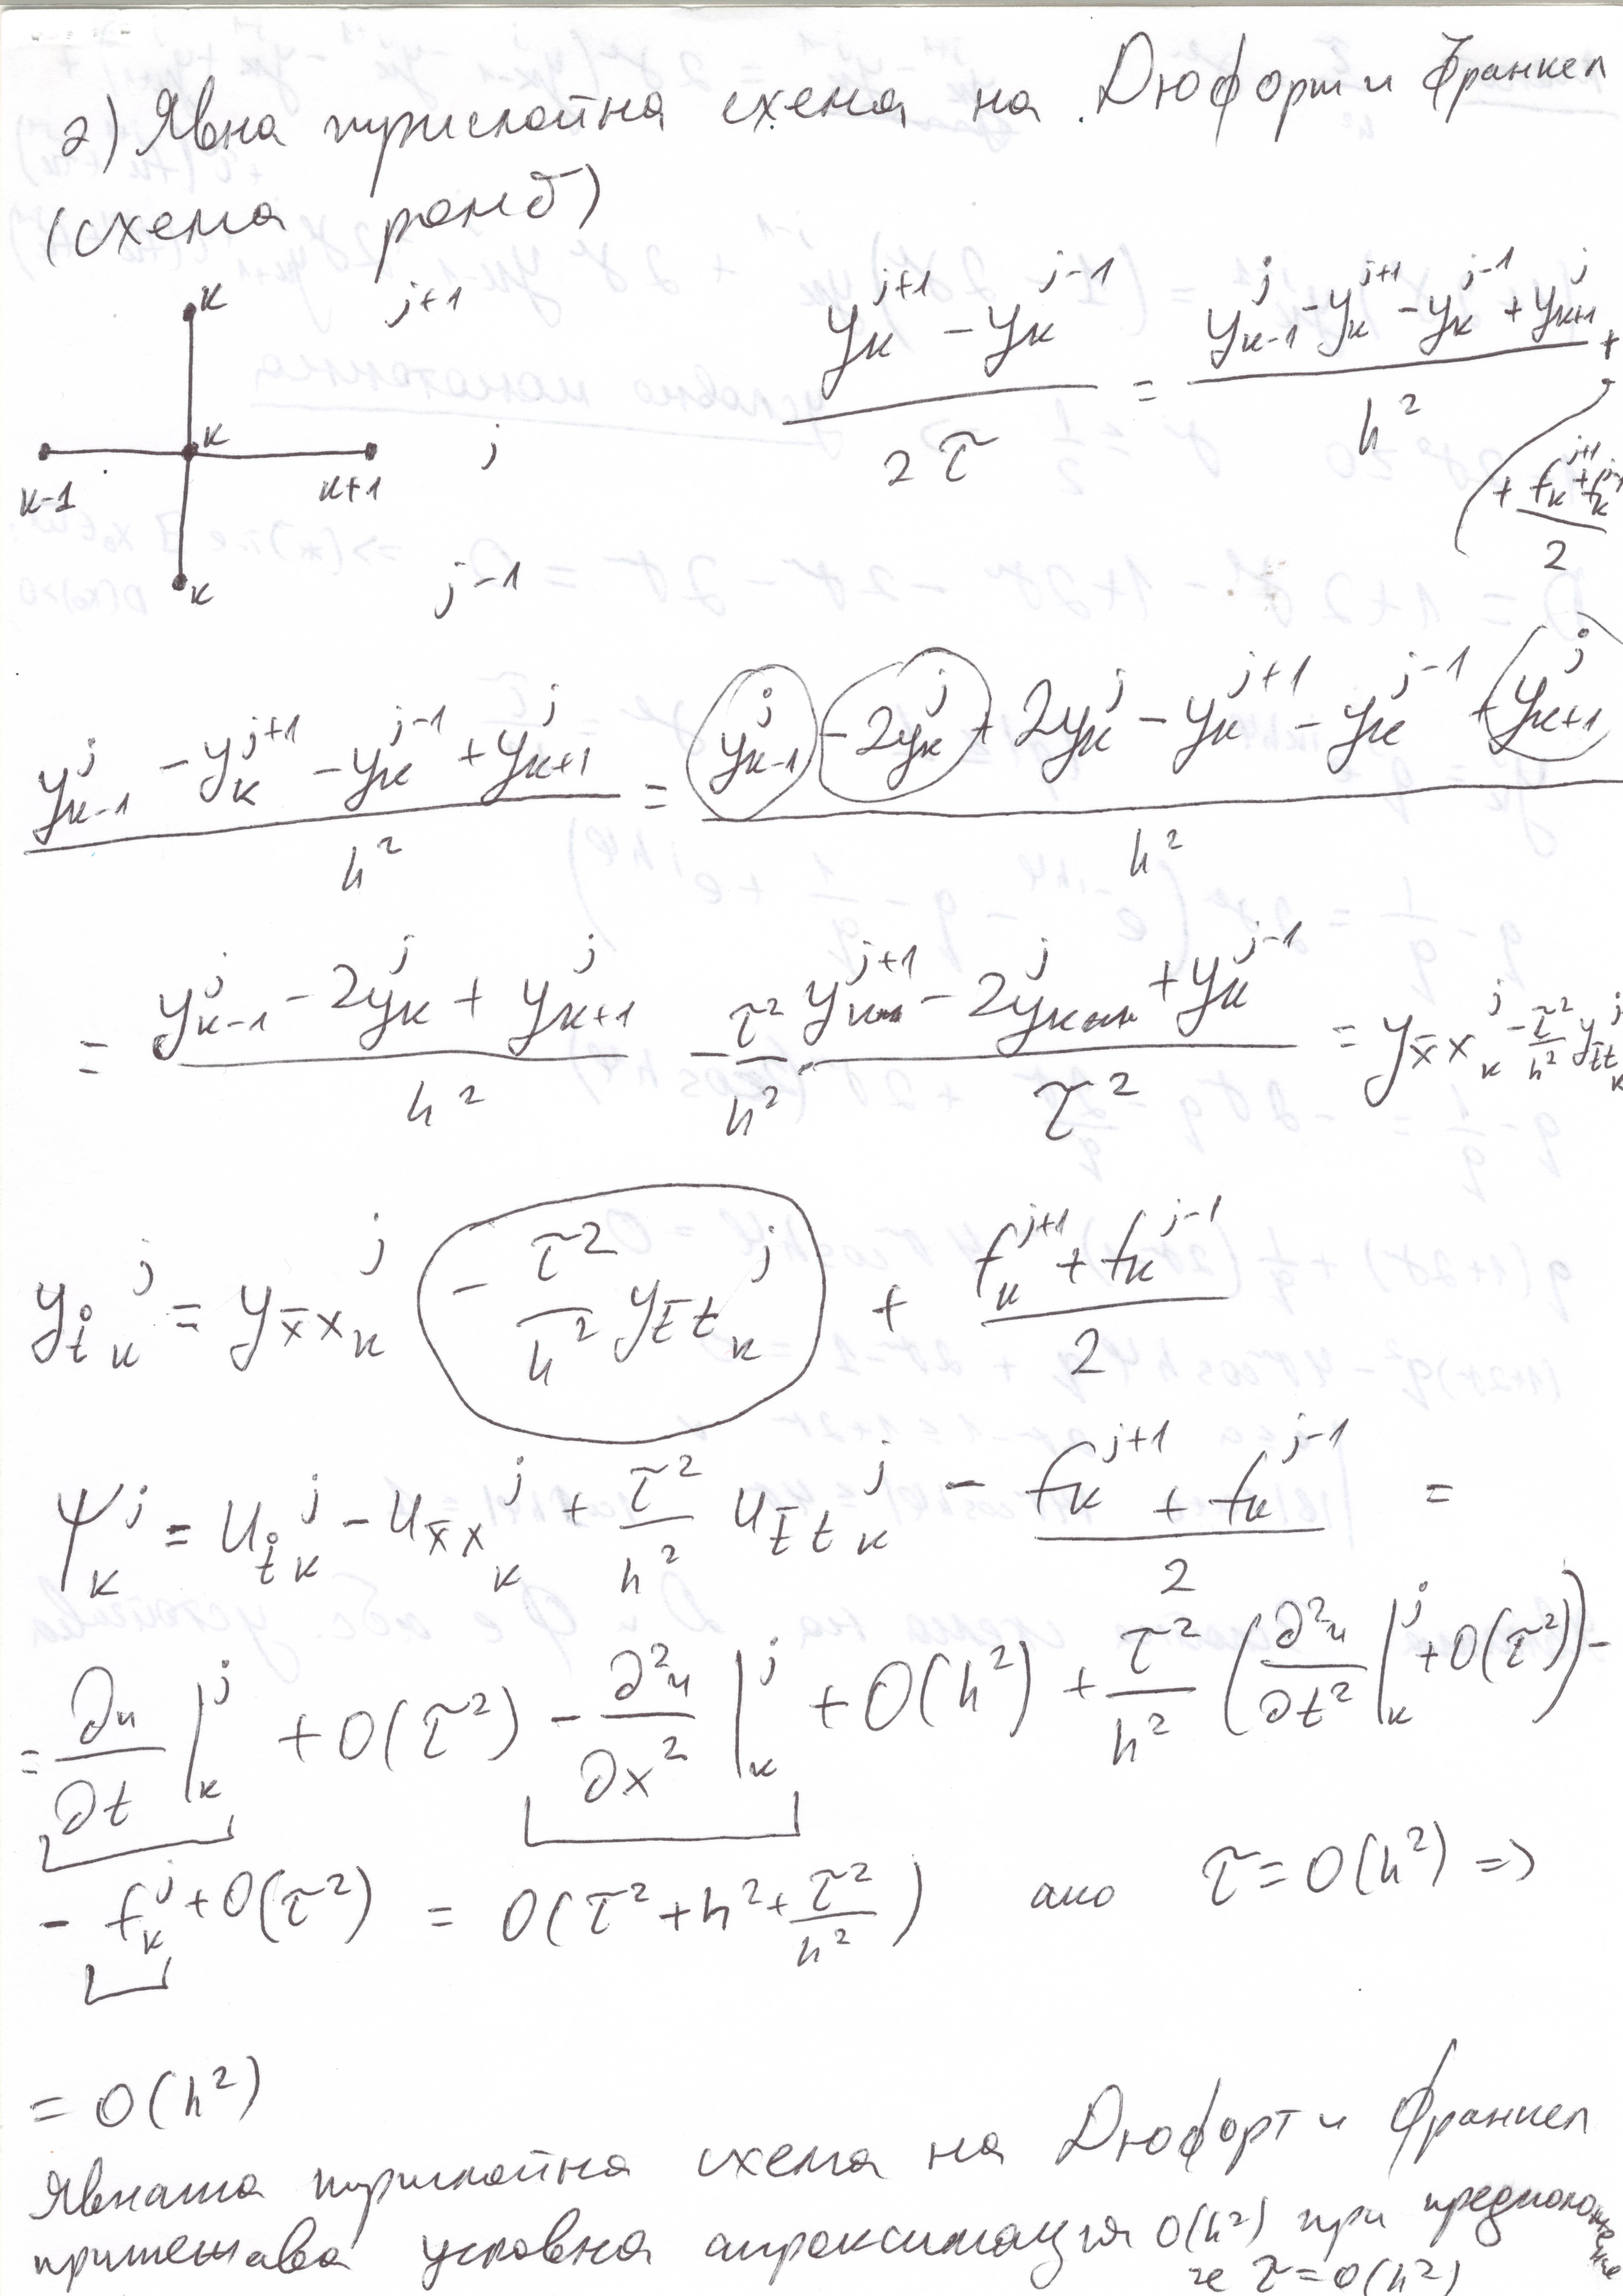 2) Явна трислойна схема на Дюфорт и Франкел
(схема ромб)
k j+1
k
k-1 k+1 j
k j-1
(y_k^{j+1} - y_k^{j-1}) / 2τ = (y_{k-1}^j - y_k^{j+1} - y_k^{j-1} + y_{k+1}^j) / h² +
+ (f_k^{j+1} + f_k^{j-1}) / 2
(y_{k-1}^j - y_k^{j+1} - y_k^{j-1} + y_{k+1}^j) / h² = (y_{k-1}^j - 2y_k^j + 2y_k^j - y_k^{j+1} - y_k^{j-1} + y_{k+1}^j) / h²
= (y_{k-1}^j - 2y_k^j + y_{k+1}^j) / h² - τ²/h² · (y_k^{j+1} - 2y_k^j + y_k^{j-1}) / τ² = y_{x̄x k}^j - τ²/h² y_{t̄t k}^j
y_{t̊ k}^j = y_{x̄x k}^j - τ²/h² y_{t̄t k}^j + (f_k^{j+1} + f_k^{j-1}) / 2
ψ_k^j = u_{t̊ k}^j - u_{x̄x k}^j + τ²/h² u_{t̄t k}^j - (f_k^{j+1} + f_k^{j-1}) / 2 =
= ∂u/∂t |_k^j + O(τ²) - ∂²u/∂x² |_k^j + O(h²) + τ²/h² (∂²u/∂t² |_k^j + O(τ²)) -
- f_k^j + O(τ²) = O(τ² + h² + τ²/h²) ако τ = O(h²) =>
= O(h²)
Явната трислойна схема на Дюфорт и Франкел
притежава условна апроксимация O(h²) при предположение
че τ = O(h²)